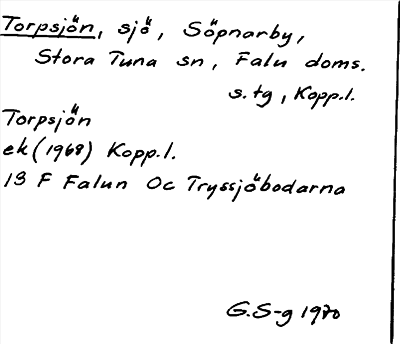 Torpsjön, sjö, Söpnarby,
Stora Tuna sn, Falu doms.
s.tg, Kopp.l.
Torpsjön
ek (1968) Kopp.l.
13 F Falun Oc Tryssjöbodarna
G.S-g 1970